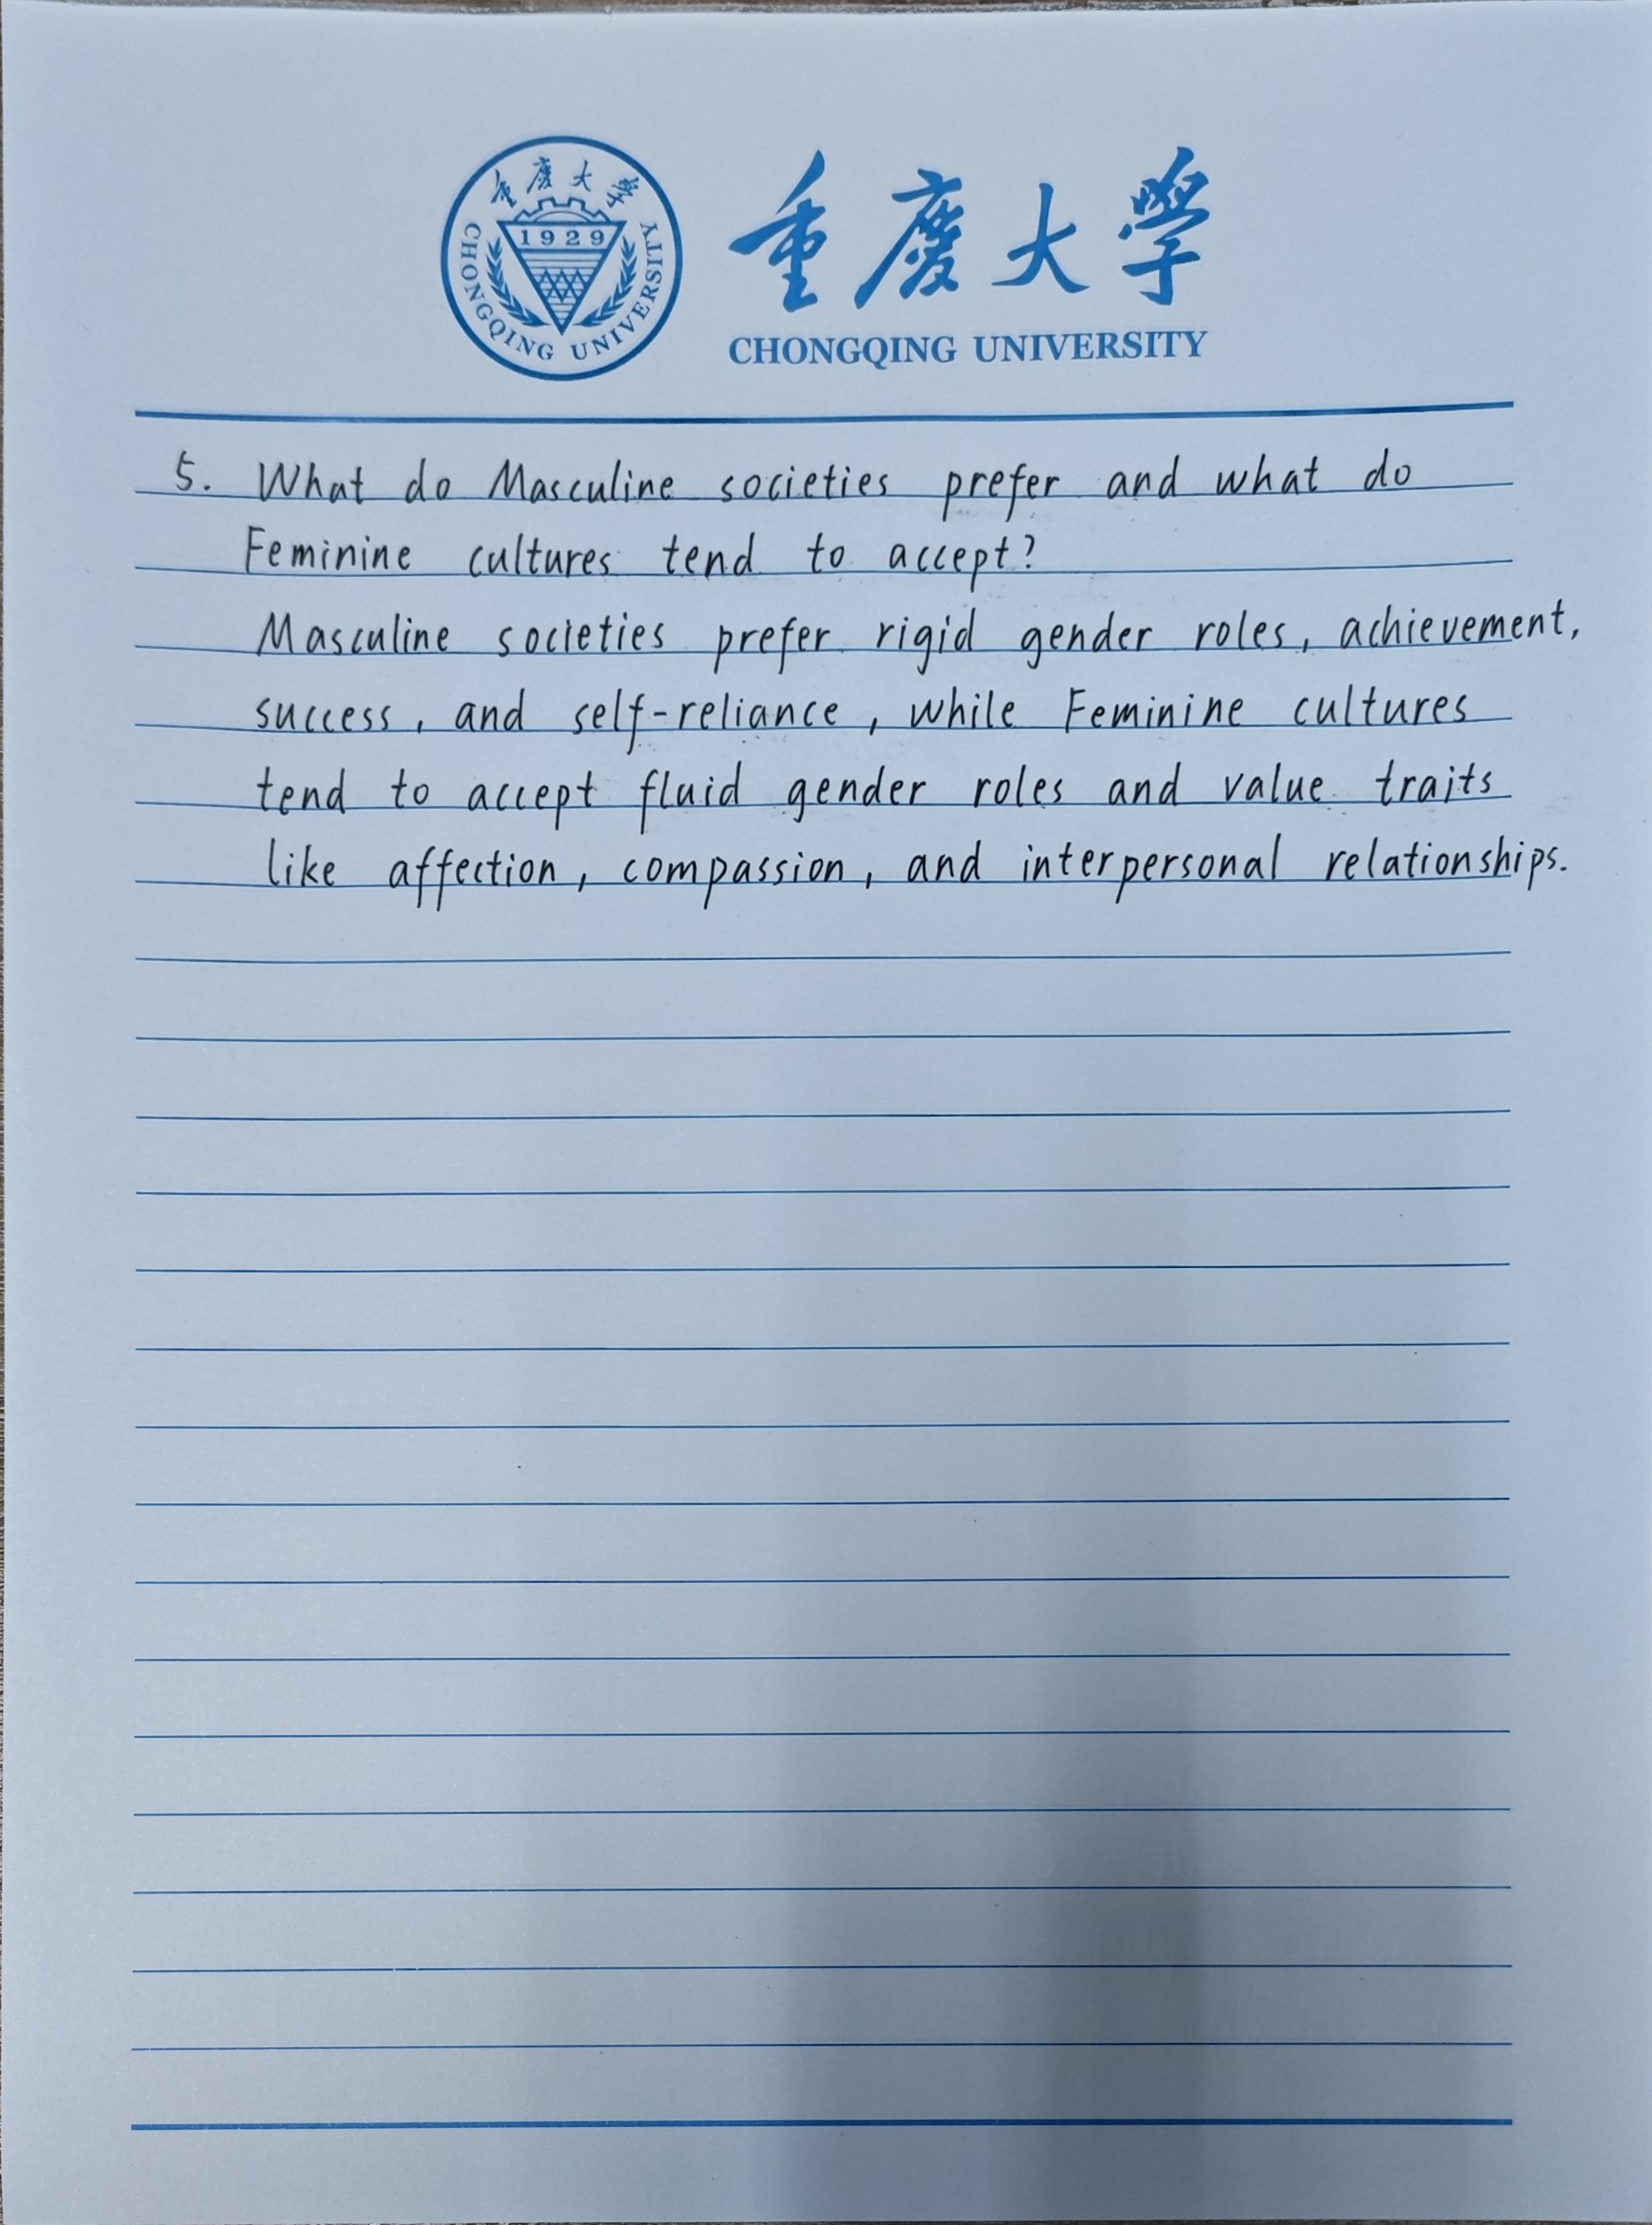 重慶大學
1929
CHONGQING UNIVERSITY
重慶大學
CHONGQING UNIVERSITY
5. What do Masculine societies prefer and what do
Feminine cultures tend to accept?
Masculine societies prefer rigid gender roles, achievement,
success, and self-reliance, while Feminine cultures
tend to accept fluid gender roles and value traits
like affection, compassion, and interpersonal relationships.